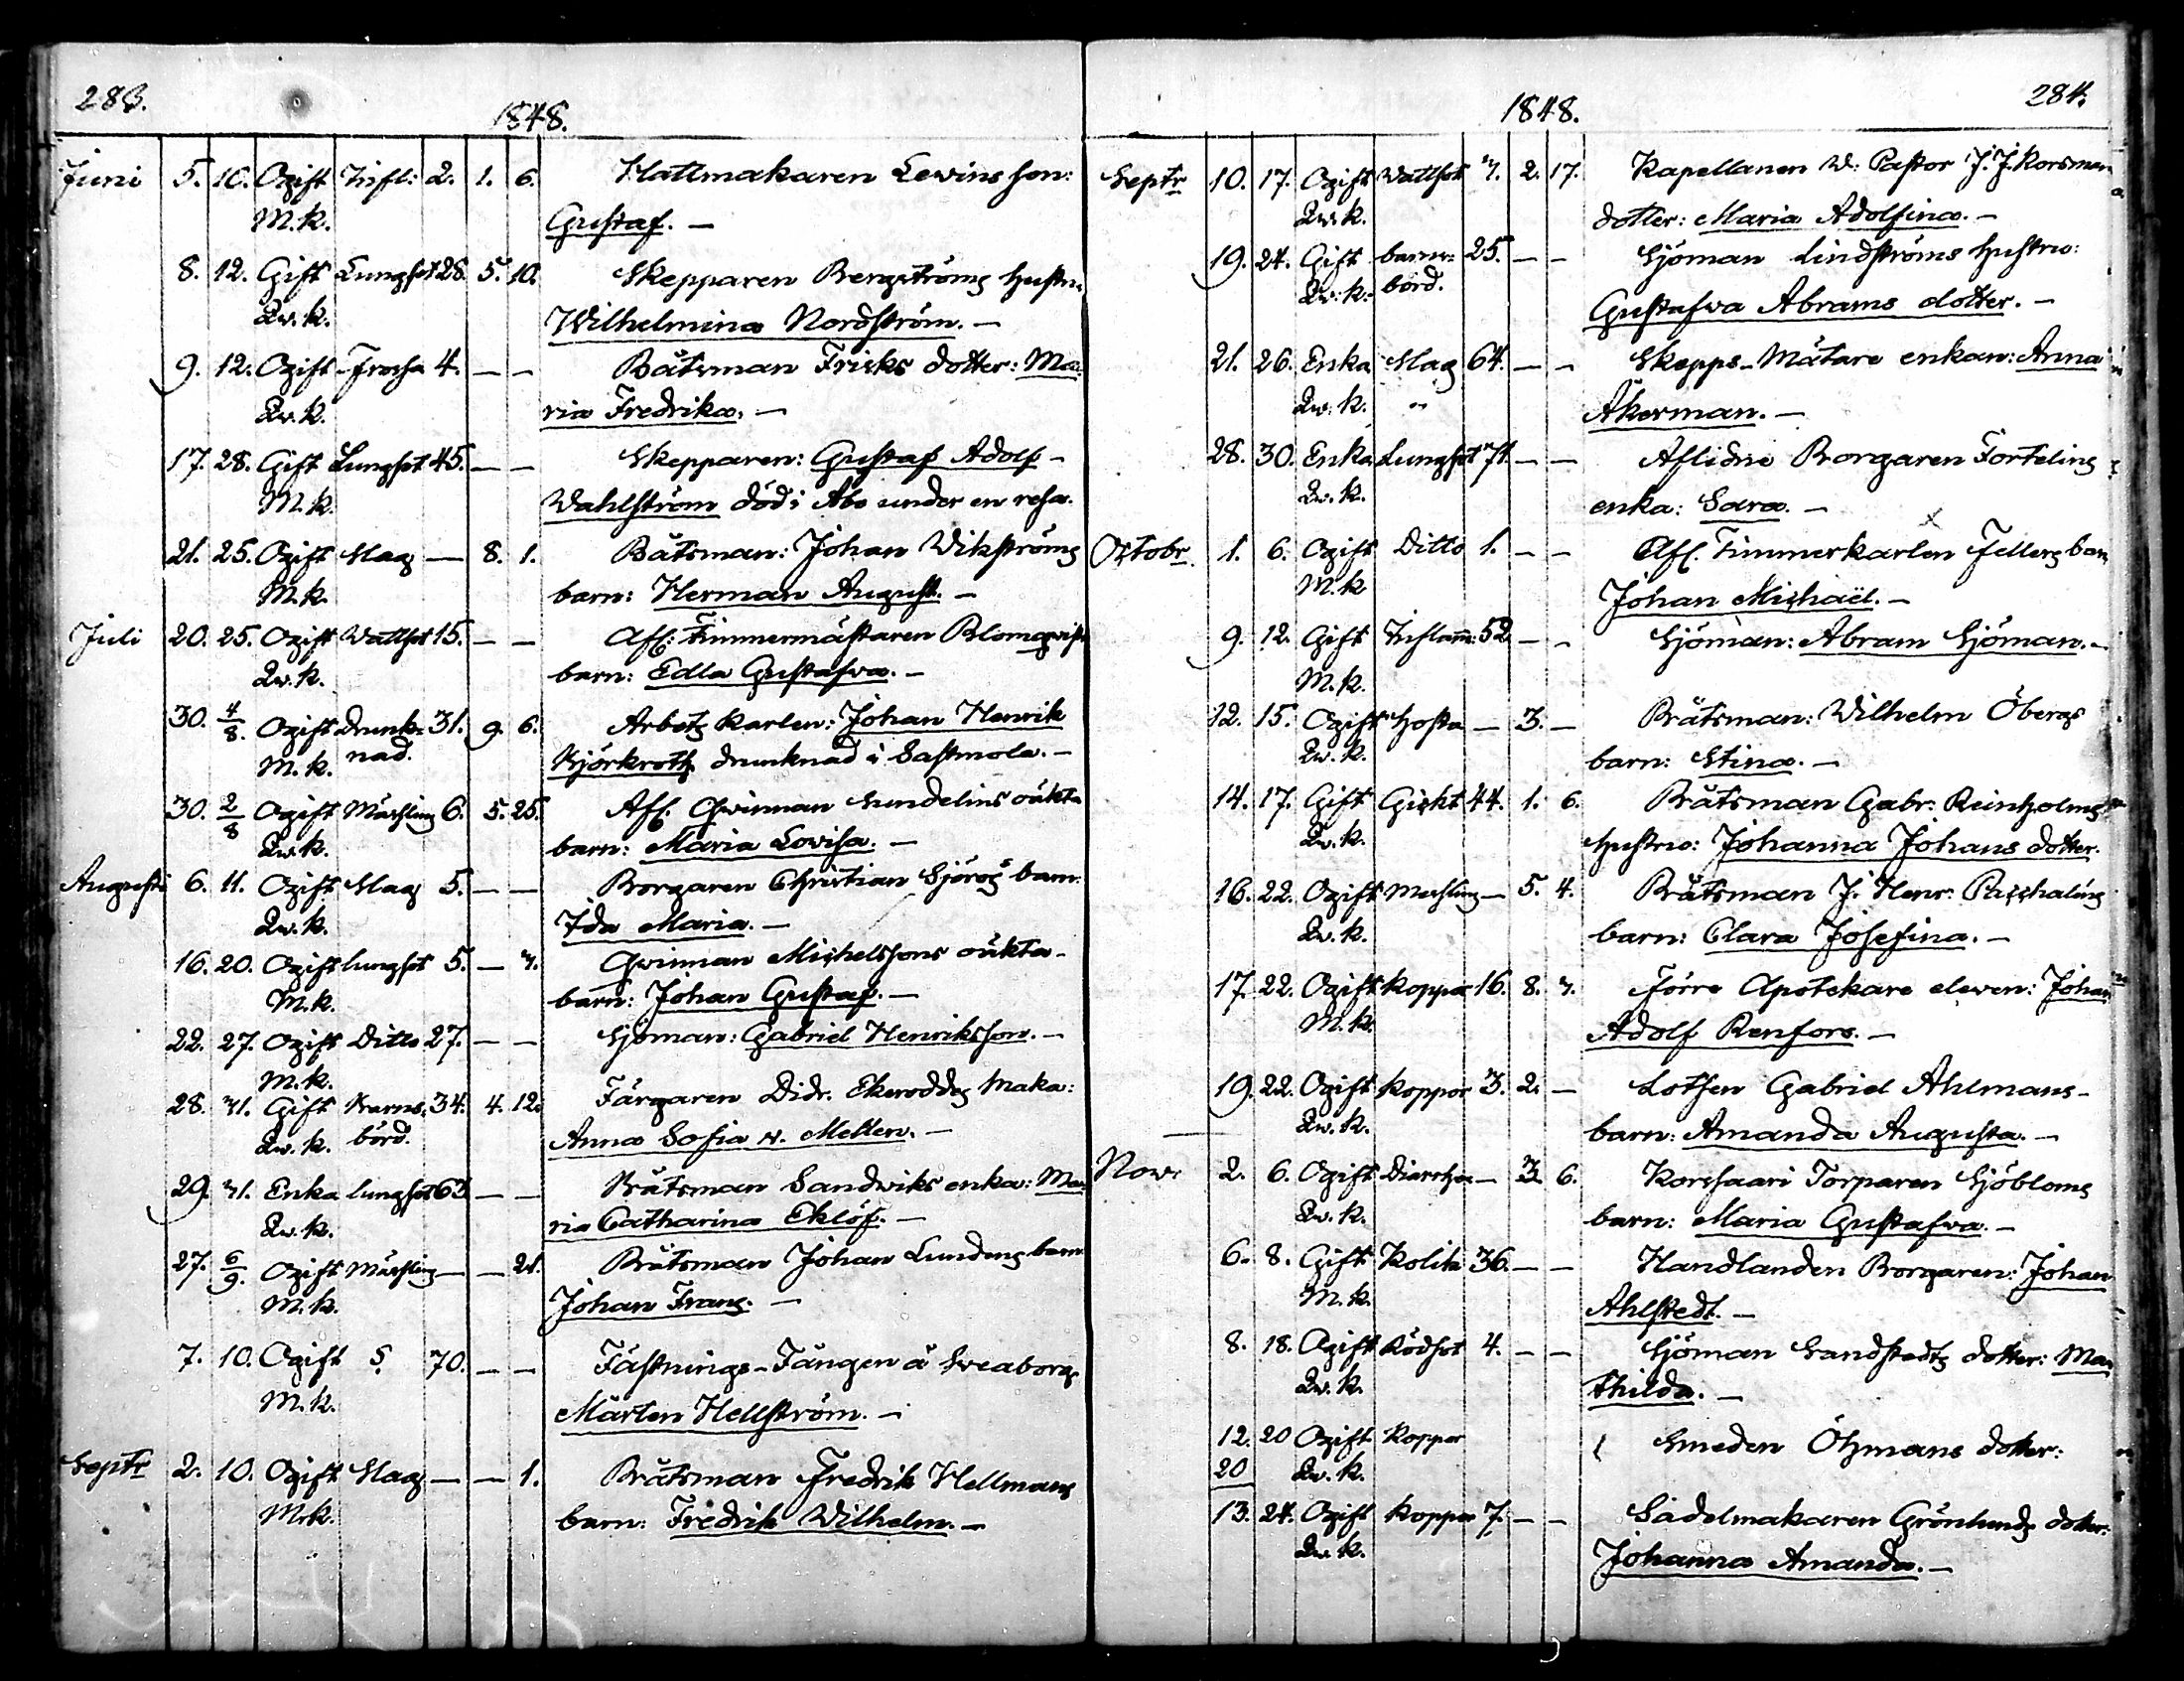 283.
1848.
Juni 5. 10. Ogift Infl: 2. 1. 6. Hattmakaren Lewins son:
M.k. Gustaf. —
8. 12. Gift Lungsot 28. 5. 10. Skepparen Bergströms hustru
Qw.k. Wilhelmina Nordström. —
9. 12. Ogift Frossa 4. — — Båtsman Frisks dotter: Ma=
Qw.k. ria Fredrika. —
17. 28. Gift Lungsot 45. — — Skepparen: Gustaf Adolf
M.k. Wahlström död i Åbo under en resa.
21. 25. Ogift Slag — 8. 1. Båtsman: Johan Wikströms
M.k. barn: Herman August. —
Juli 20. 25. Ogift Wattsot 15. — — Afl: Timmermästaren Blomqwists
Qw.k. barn: Edla Gustafwa. —
30. 4/8. Ogift drunk= 31. 9. 6. Arbets karlen: Johan Henrik
M.k. nad. Björkroth drunknad i Sastmola. —
30. 2/8 Ogift Mässling 6. 5. 25. Afl. Qwinnan Sundelins oäkta
Qw.k. barn: Maria Lovisa. —
Augusti 6. 11. Ogift Slag 5. — — Borgaren Christian Sjöros barn:
Qw.k. Ida Maria. —
16. 20. Ogift lungsot 5. — 7. Qwinnan Michelssons oäkta
M.k. barn: Johan Gustaf. —
22. 27. Ogift Ditto 27. — — Sjöman: Gabriel Henriksson. —
M.k.
28. 31. Gift Barns= 34. 4. 12. Färgaren Didr. Ekerodds Maka:
Qw.k. börd. Anna Sofia v. Mellen. —
29. 31. Enka lungsot 63 — — Båtsman Sandwiks enka: Ma=
Qw.k. ria Catharina Eklöf. —
27. 6/9. Ogift Mässling — — 21. Båtsman Johan Lundens barn
M.k. Johan Frans. —
7. 10. Ogift 70. — — Fästnings-Fången å Sveaborg
M.k. Mårten Hellström. —
Septr 2. 10. Ogift Slag — — 1. Båtsman Fredrik Hellmans
M.k. barn: Fredrik Wilhelm. —
284.
1848.
Septr 10. 17. Ogift Wattsot 7. 2. 17. Kapellanen W: Pastor J. J. Korsman
Qw.k. dotter: Maria Adolfina. —
19. 24. Gift barns= 25. — — Sjöman Lindströms hustru:
Qw.k. börd. Gustafwa Abrams dotter. —
21. 26. Enka Slag 64. — — Skepps-Mätare enkan: Anna
Qw.k. Åkerman. —
28. 30. Enka Lungsot 71. — — Aflidne Borgaren Fortelins
Qw.k. enka: Sara. —
Octobr 1. 6. Ogift Ditto 1. — — Afl. Timmerkarlen Fellers barn
M.k Johan Michaël. —
9. 12. Gift Inflam: 52 — — Sjöman: Abram Sjöman. —
M.k.
12. 15. Ogift hosta — 3. — Båtsman: Wilhelm Öbergs
Qw.k. barn: Stina. —
14. 17. Gift Gickt 44. 1. 6. Båtsman Gabr: Reinholms
Qw.k. hustru: Johanna Johans dotter.
16. 22. Ogift Messling — 5. 4. Båtsman J. Henr: Paschalins
Qw.k. barn: Clara Josefina. —
17. 22. Ogift Koppor 16. 8. 7. Förre Apotekare eleven: Johan
M.k. Adolf Renfors. —
19. 22. Ogift Koppor 3. 2. — Lotsen Gabriel Ahlmans
Qw.k. barn: Amanda Augusta. —
Nowr 2. 6. Ogift Diarrhea — 3. 6. Korssaari Torparen Sjöbloms
Qw.k. barn: Maria Gustafwa. —
6. 8. Gift Kolik 36. — — Handlanden Borgaren: Johan
M.k. Ahlstedt. —
8. 18. Ogift Rödsot 4. — — Sjöman Sandstedts dotter: Ma=
Qw.k. thilda. —
12. 20 Ogift Koppor Smeden Öhmans dotter:
20 Qw.k.
13. 24. Ogift Koppor 7. — — Sadelmakaren Grönlunds dotter:
Qw.k. Johanna Amanda. —